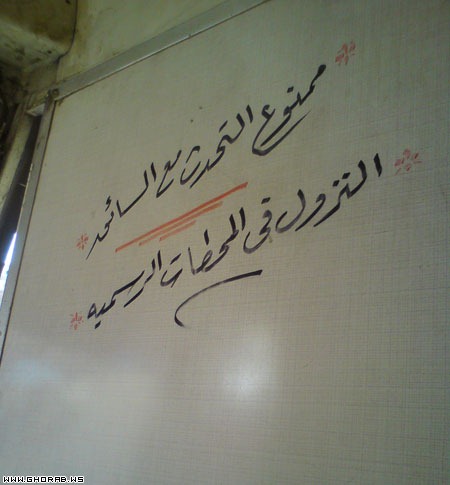 ممنوع التحدث مع السائق
النزول فى المحطات الرسميه
WWW.GHORAB.WS